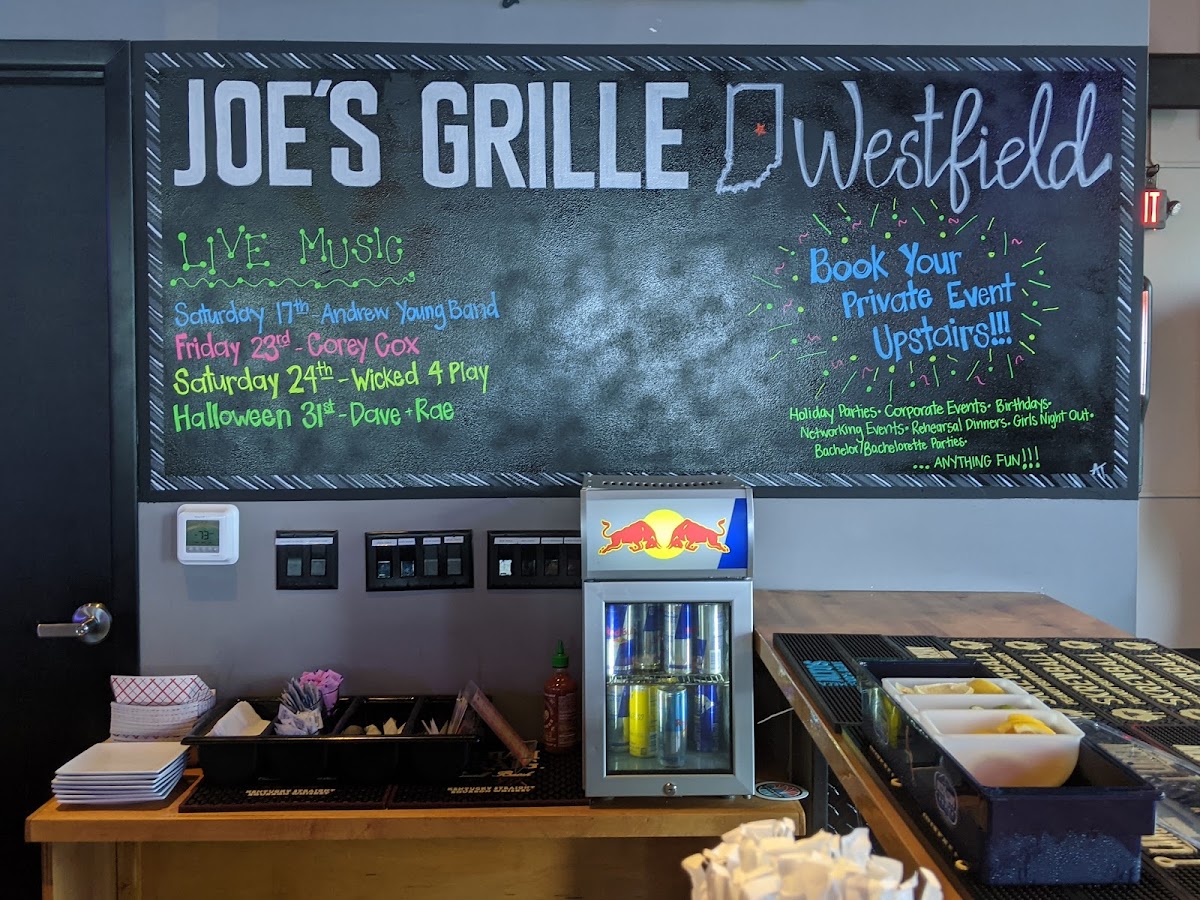 JOE'S GRILLE Westfield
LIVE MUSIC
Saturday 17th - Andrew Young Band
Friday 23rd - Corey Cox
Saturday 24th - Wicked 4 Play
Halloween 31st - Dave + Rae
Book Your
Private Event
Upstairs!!!
Holiday Parties • Corporate Events • Birthdays •
Networking Events • Rehearsal Dinners • Girls Night Out •
Bachelor/Bachelorette Parties •
... ANYTHING FUN!!!
AT
IT
73